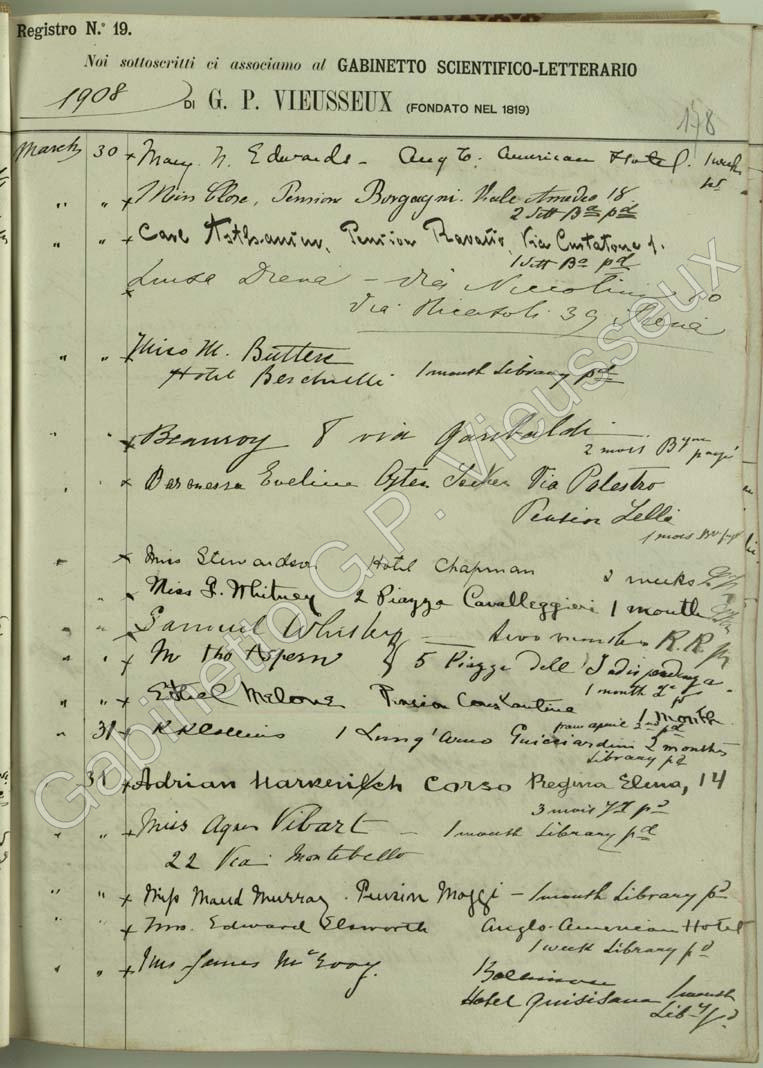 Registro N.° 19.
Noi sottoscritti ci associamo al GABINETTO SCIENTIFICO-LETTERARIO
1908 DI G. P. VIEUSSEUX (FONDATO NEL 1819)
178
March 30 x Mary N. Edwards - Anglo. American Hotel. 1 week
" " x Miss Close, Pension Borgagni. Viale Amedeo 18.
2 Sett Ba pd
" " x Carl Pension Ravano, Via Curtatone 1.
1 Sett Ba pd
x Luisa Drena - Via Niccolini
Via Ricasoli 39 Drena
" " x Miss M. Butters
Hotel 1 month Library pd
" " x Beauroy 8 via Garibaldi
2 mois payé
" " x Baronessa Evelina Via Palestro
Pension Lelli
1 mois
x Miss Stewardson Hotel Chapman 2 weeks
" Miss F. Whitney 2 Piazza Cavalleggieri 1 month
" " x Samuel Whisley - two months R. R.
" " x Mr Tho Aspern 5 Piazza dell' Indipendenza.
1 month
" " x Ethel Malone Pension Constantine 1 month
from April 2nd pd
" 31 x K K Collins 1 Lung'Arno Guicciardini 2 months
Library pd
" 31 x Adrian Corso Regina Elena, 14
3 mois pd
" " x Miss Agnes Vibart - 1 month Library pd
22 Via Montebello
" " x Miss Maud Murray. Pension Moggi - 1 month Library pd
" " x Mrs. Edward Elsworth Anglo-American Hotel
1 week Library pd
" " x James McEvoy.
Hotel Quisisana 1 month
Liby pd
Gabinetto G.P. Vieusseux